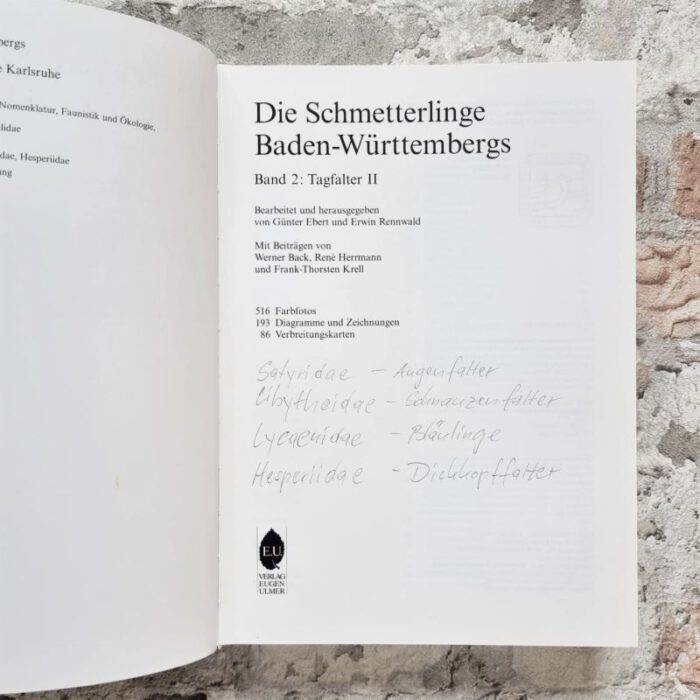 bergs
e Karlsruhe
Nomenklatur, Faunistik und Ökologie,
lidae
dae, Hesperiidae
ung
Die Schmetterlinge
Baden-Württembergs
Band 2: Tagfalter II
Bearbeitet und herausgegeben
von Günter Ebert und Erwin Rennwald
Mit Beiträgen von
Werner Back, René Herrmann
und Frank-Thorsten Krell
516 Farbfotos
193 Diagramme und Zeichnungen
86 Verbreitungskarten
Satyridae – Augenfalter
Libytheidae – Schnauzenfalter
Lycaenidae – Bläulinge
Hesperiidae – Dickkopffalter
E.U.
VERLAG
EUGEN
ULMER